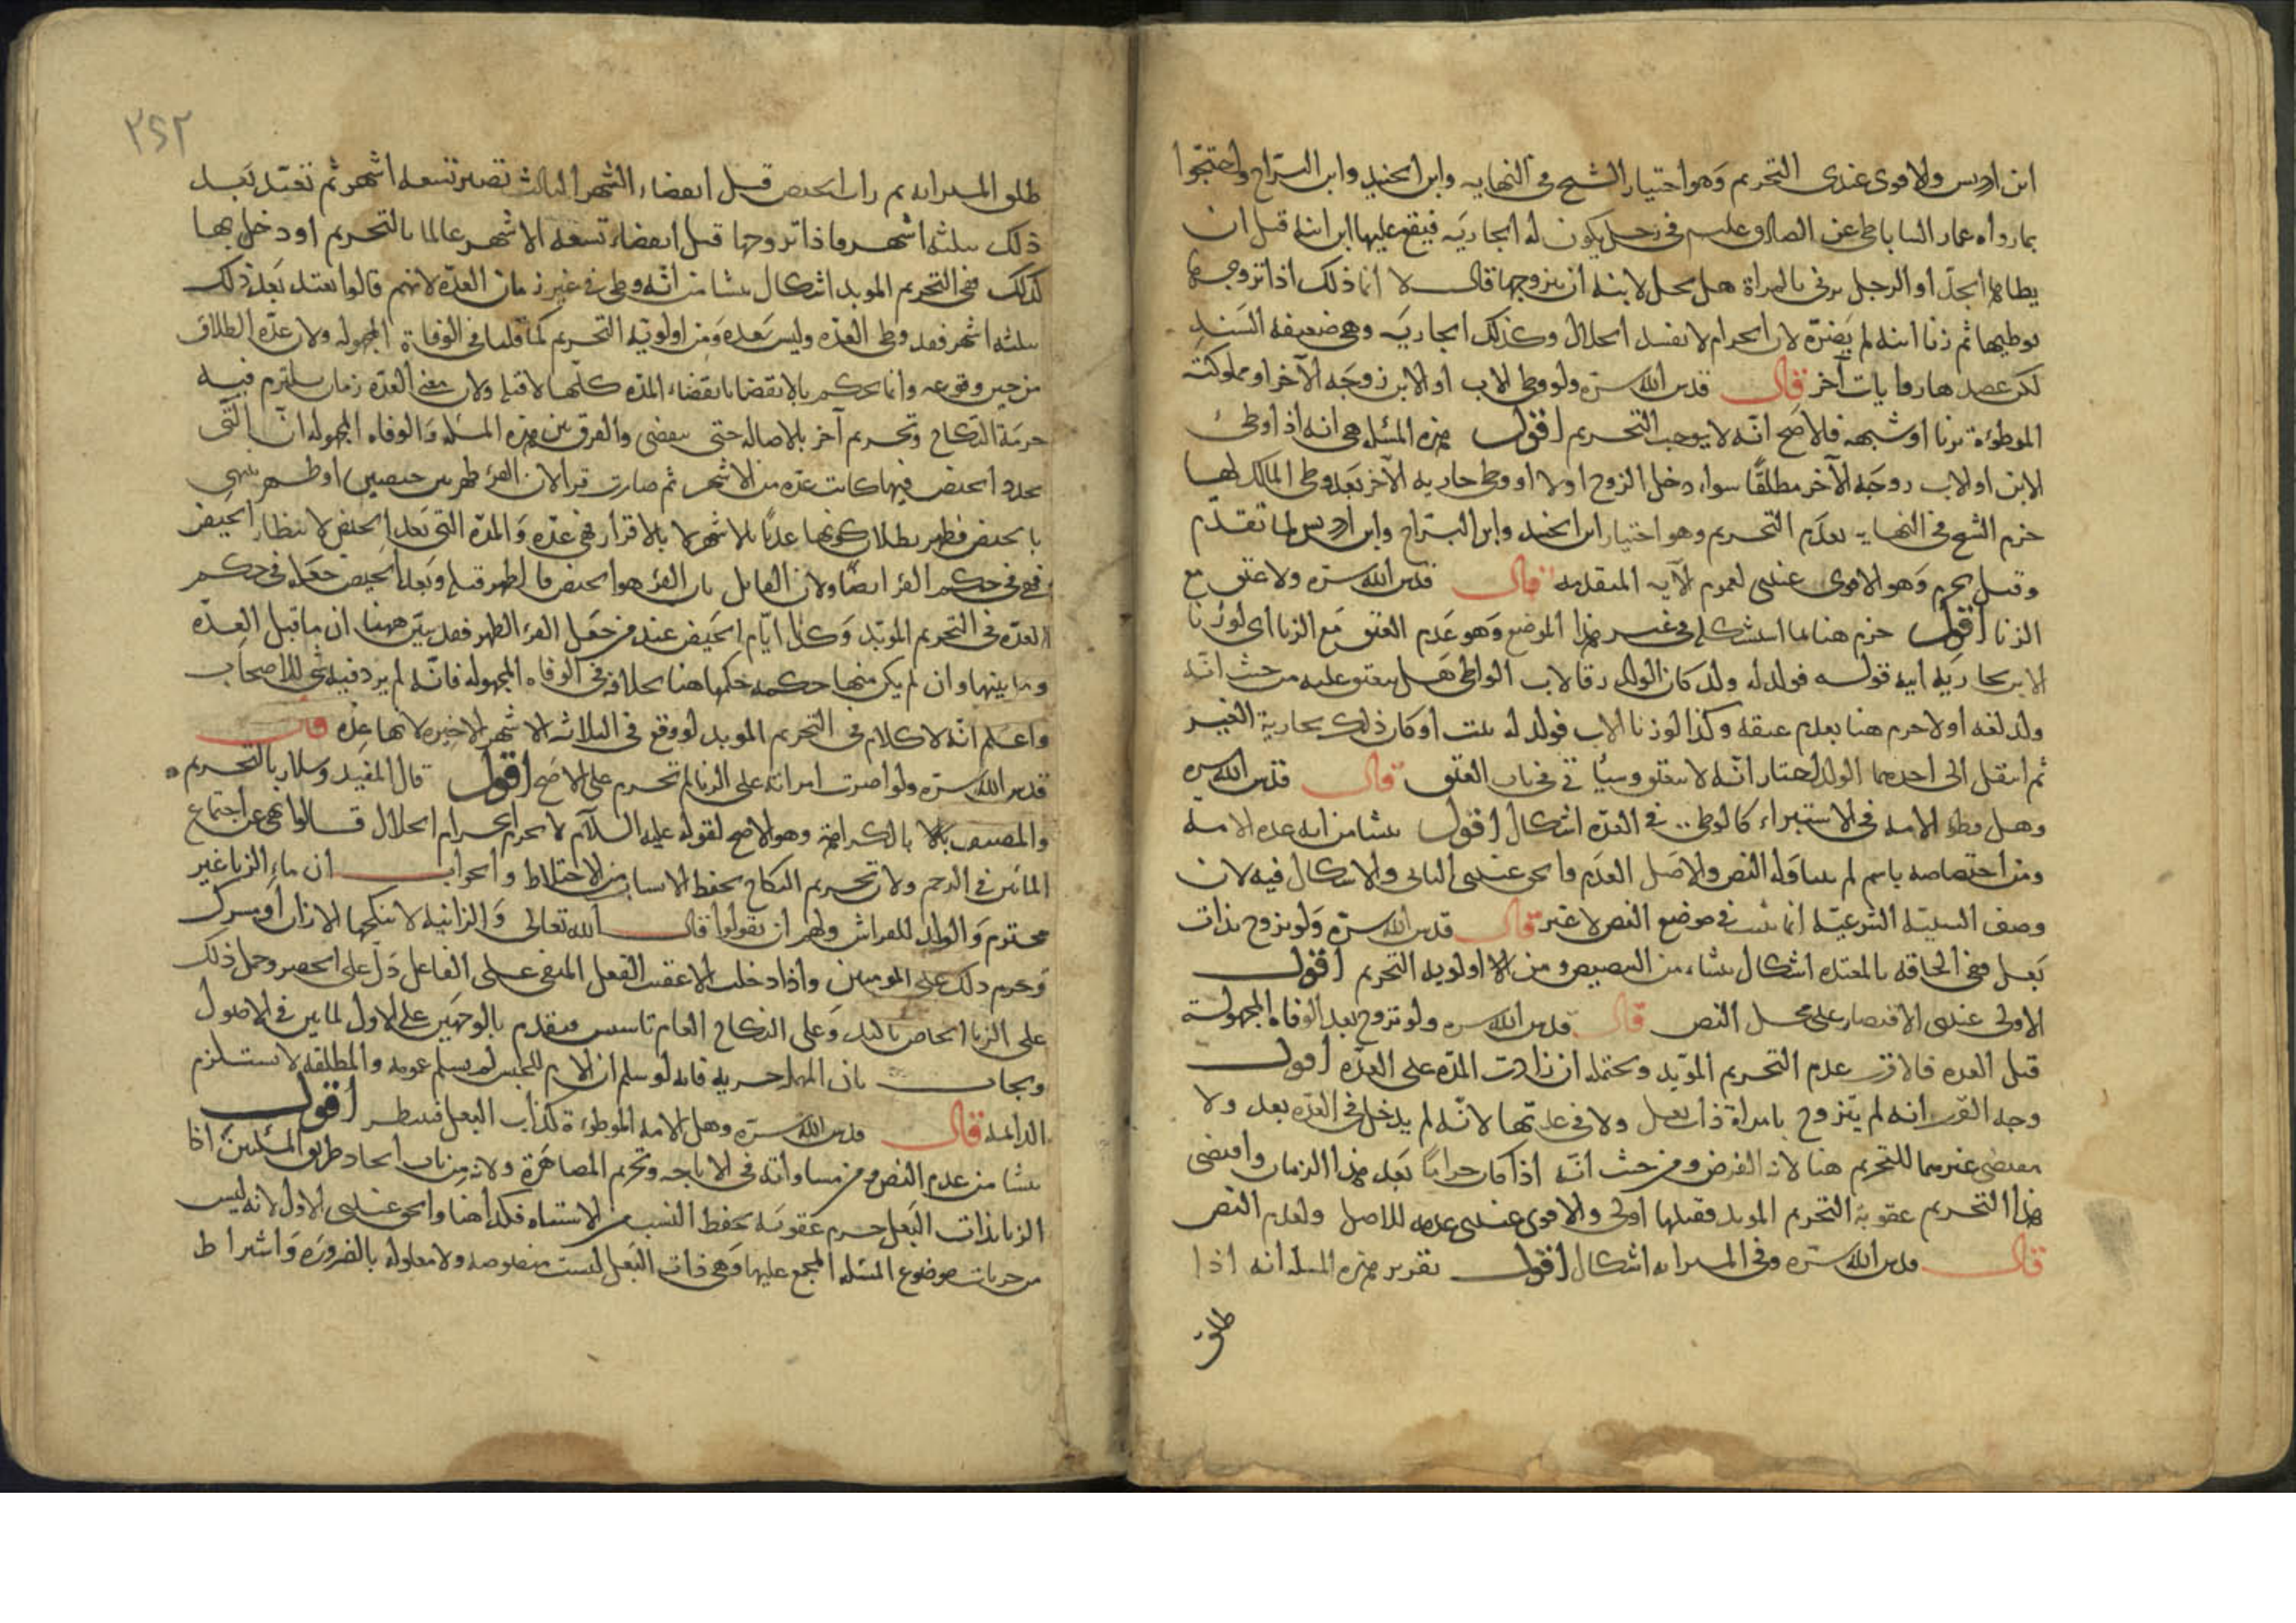 ابن ادريس والاقوى عندى التحريم وهو اختيار الشيخ فى النهايه وابن الجنيد وابن البراج واحتجوا
بما رواه عمار الساباطى عن الصادق عليه م فى رجل يكون له الجاريه فيقع عليها ابن ابنه قبل ان
يطاها الجد او الرجل يزنى بالمراة هل يحل لابنه ان يتزوجها قال لا انما ذلك اذا تزوجها
فوطيها ثم زنا ابنه لم يضره لان الحرام لا يفسد الحلال وكذلك الجاريه وهى ضعيفه السند
لكن عضدها روايات آخر قال قدس الله سره ولو وطى الاب او الابن زوجه الآخر او مملوكته
الموطؤة بزنا او شبهه فالاصح انه لا يوجب التحريم اقول هذه المسئله هى انه اذا وطئ
الابن او الاب زوجه الآخر مطلقًا سواء دخل الزوج اولا او وطى جاريه الآخر بعد وطى المالك لها
جزم الشيخ فى النهايه بعدم التحريم وهو اختيار ابن الجنيد وابن البراج وابن ادريس لما تقدم
وقيل يحرم وهو الاقوى عندى لعموم الآيه المتقدمه قال قدس الله سره ولا عتق مع
الزنا اقول جزم هنا بما استشكله فى غير هذا الموضع وهو عدم العتق مع الزنا اى لو زنا
الابن بجاريه ابيه فولد له ولد كان الولد رقا لاب الواطى هل ينعتق عليه من حيث انه
ولد لغه اولا جزم هنا بعدم عتقه وكذا لو زنا الاب فولد له بنت او كان ذلك بجارية الغير
ثم انتقل الى احدهما الولد المختار انه لا ينعتق وسيأتى فى باب العتق قال قدس الله سره
وهل وطؤ الامه فى الاستبراء كالوطى فى العده اشكال اقول ينشا من انه عده الامه
ومن اختصاصه باسم لم يتناوله النص والاصل العدم والحق عندى الثانى والاشكال فيه لان
وصف السببيه الشرعيه انما ثبت فى موضع النص لا غير قال قدس الله سره ولو تزوج بذات
بعل ففى الحاقه بالمعتده اشكال ينشاء من التنصيص ومن الاولويه التحريم اقول
الاولى عندى الاقتصار على محل النص قال قدس الله سره ولو تزوج بعد الوفاه المجهولة
قبل العده فالاقرب عدم التحريم المؤبد ويحتمله ان زادت المده على العده اقول
وجه القرب انه لم يتزوج بامراة ذات بعل ولا فى عدتها لانه لم يدخل فى العده بعد ولا
مقتضى غيرهما للتحريم هنا لانه الفرض ومن حيث انه اذا كان حرامًا بعد هذا الزمان واقتضى
هذا التحريم عقوبة التحريم المؤبد فقبلها اولى والاقوى عندى عدمه للاصل ولعدم النص
قال قدس الله سره وفى المسترابه اشكال اقول تقرير هذه المسئله انه اذا
طلق
٢٤٢
طلق المسترابه ثم رات الحيض قبل انقضاء الشهر الثالث تصبر تسعه اشهر ثم تعتد بعد
ذلك بثلثه اشهر فاذا تزوجها قبل انقضاء تسعه الاشهر عالما بالتحريم او دخل بها
كذلك ففى التحريم المؤبد اشكال ينشا من انه وطى فى غير زمان العده لانهم قالوا تعتد بعد ذلك
بثلثه اشهر فقبله وطى العده وليس بعده ومن اولويه التحريم كما قلنا فى الوفاة المجهوله ولان عده الطلاق
من حين وقوعه وانما يحكم بالانقضا بانقضاء المده كلها لا قبله ولان معنى العده زمان يلتزم فيه
حرمة النكاح وتحريم آخر بالاصاله حتى ينقضى والفرق بين هذه المسئله والوفاه المجهوله ان التى
تجدد الحيض فيها كانت عده من الاشهر ثم صارت قرأ لان القرء طهر بين حيضتين او طهر ينتهى
بالحيض فظهر بطلان كونها عدتها بالاشهر لا بالاقراء فهى عده والمده التى بعد الحيض لانتظار الحيض
فهى فى حكم القرء ايضًا ولان القائل بان القرء هو الحيض فالطهر قبله وبعد الحيض جعله فى حكم
العده فى التحريم المؤبد وكذا ايام الحيض عند من جعل القرء الطهر فقد تبين ههنا ان ما قبل العده
وما بينها وان لم يكن منها حكمه حكمها هنا بخلافه فى الوفاه المجهوله فانه لم يرد فيه شى للاصحاب
واعلم انه لا كلام فى التحريم المؤبد لو وقع فى الثلاثه الاشهر الاخيره لانها عده قال
قدس الله سره ولو اصرت امراته على الزنا لم تحرم على الاصح اقول قال المفيد وسلار بالتحريم
والمصنف بلا بالكراهة وهو الاصح لقوله عليه السلام لا يحرم الحرام الحلال قالوا نهى عن اجتماع
المائين فى الرحم ولان تحريم النكاح بحفظ الانساب من الاختلاط والجواب ان ماء الزنا غير
محترم والولد للفراش ولهم ان يقولوا قال الله تعالى والزانيه لا ينكحها الا زان او مشرك
وحرم ذلك على المومنين واذا دخلت الا عقيب الفعل المنفى على الفاعل دل على الحصر وحمل ذلك
على الزنا الخاص تاكيد وعلى النكاح العام تاسيس فيقدم بالوجهين على الاول لما بين فى الاصول
ويجاب بان المهمله جزئيه فانه لو سلم ان اللام للجنس لم يسلم عمومه والمطلقه لا تستلزم
الدائمه قال قدس الله سره وهل الامه الموطؤة كذات البعل فيه نظر اقول
ينشا من عدم النص ومن مساواته فى الاباحه وتحريم المصاهرة ولانه من باب اتحاد طريق المسئلتين اذا
الزنا بذات البعل حرم عقوبه بحفظ النسب من الاشتباه فكذا هنا والحق عندى الاول لانه ليس
من جزئيات موضوع المسئله المجمع عليها وهى ذات البعل ليست منصوصه ولا معلوله بالضروره واشتراط